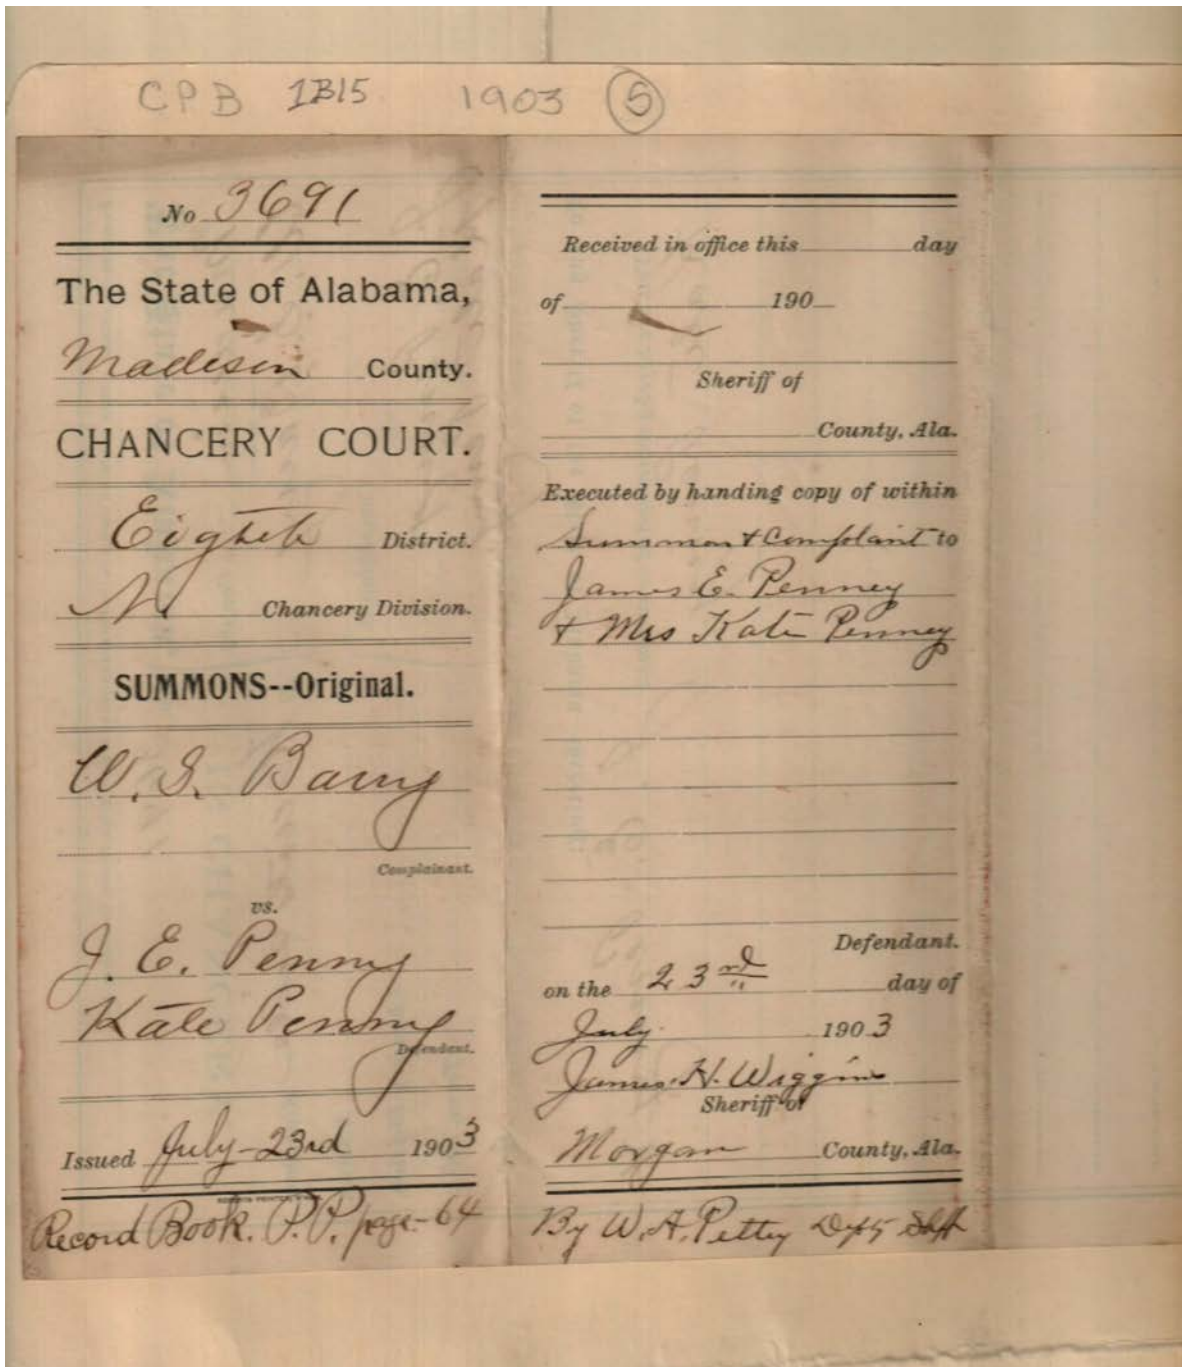 CPB 1B15 1903 5
No 3691
The State of Alabama,
Madison County.
CHANCERY COURT.
Eighth District.
N Chancery Division.
SUMMONS--Original.
W. S. Barry
Complainant.
vs.
J. E. Penny
Kate Penny
Defendant.
Issued July-23rd 1903
Record Book. P.P. page-64
Received in office this day
of 190
Sheriff of
County, Ala.
Executed by handing copy of within
Summons & Complaint to
James E. Penney
& Mrs Kate Penney
Defendant.
on the 23rd day of
July 1903
James H. Wiggins
Sheriff of
Morgan County, Ala.
By W. A. Pettey Dpty Shff